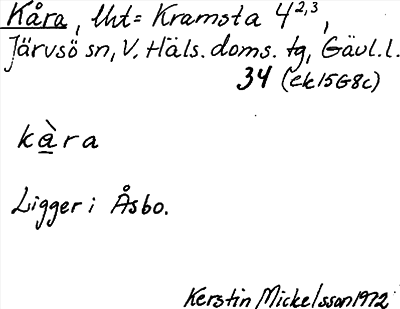 Kåra, lht = Kramsta 4 2,3,
Järvsö sn, V. Häls. doms. tg, Gävl. l.
34 (ek 15G8c)
kàra
Ligger i Åsbo.
Kerstin Mickelsson 1972